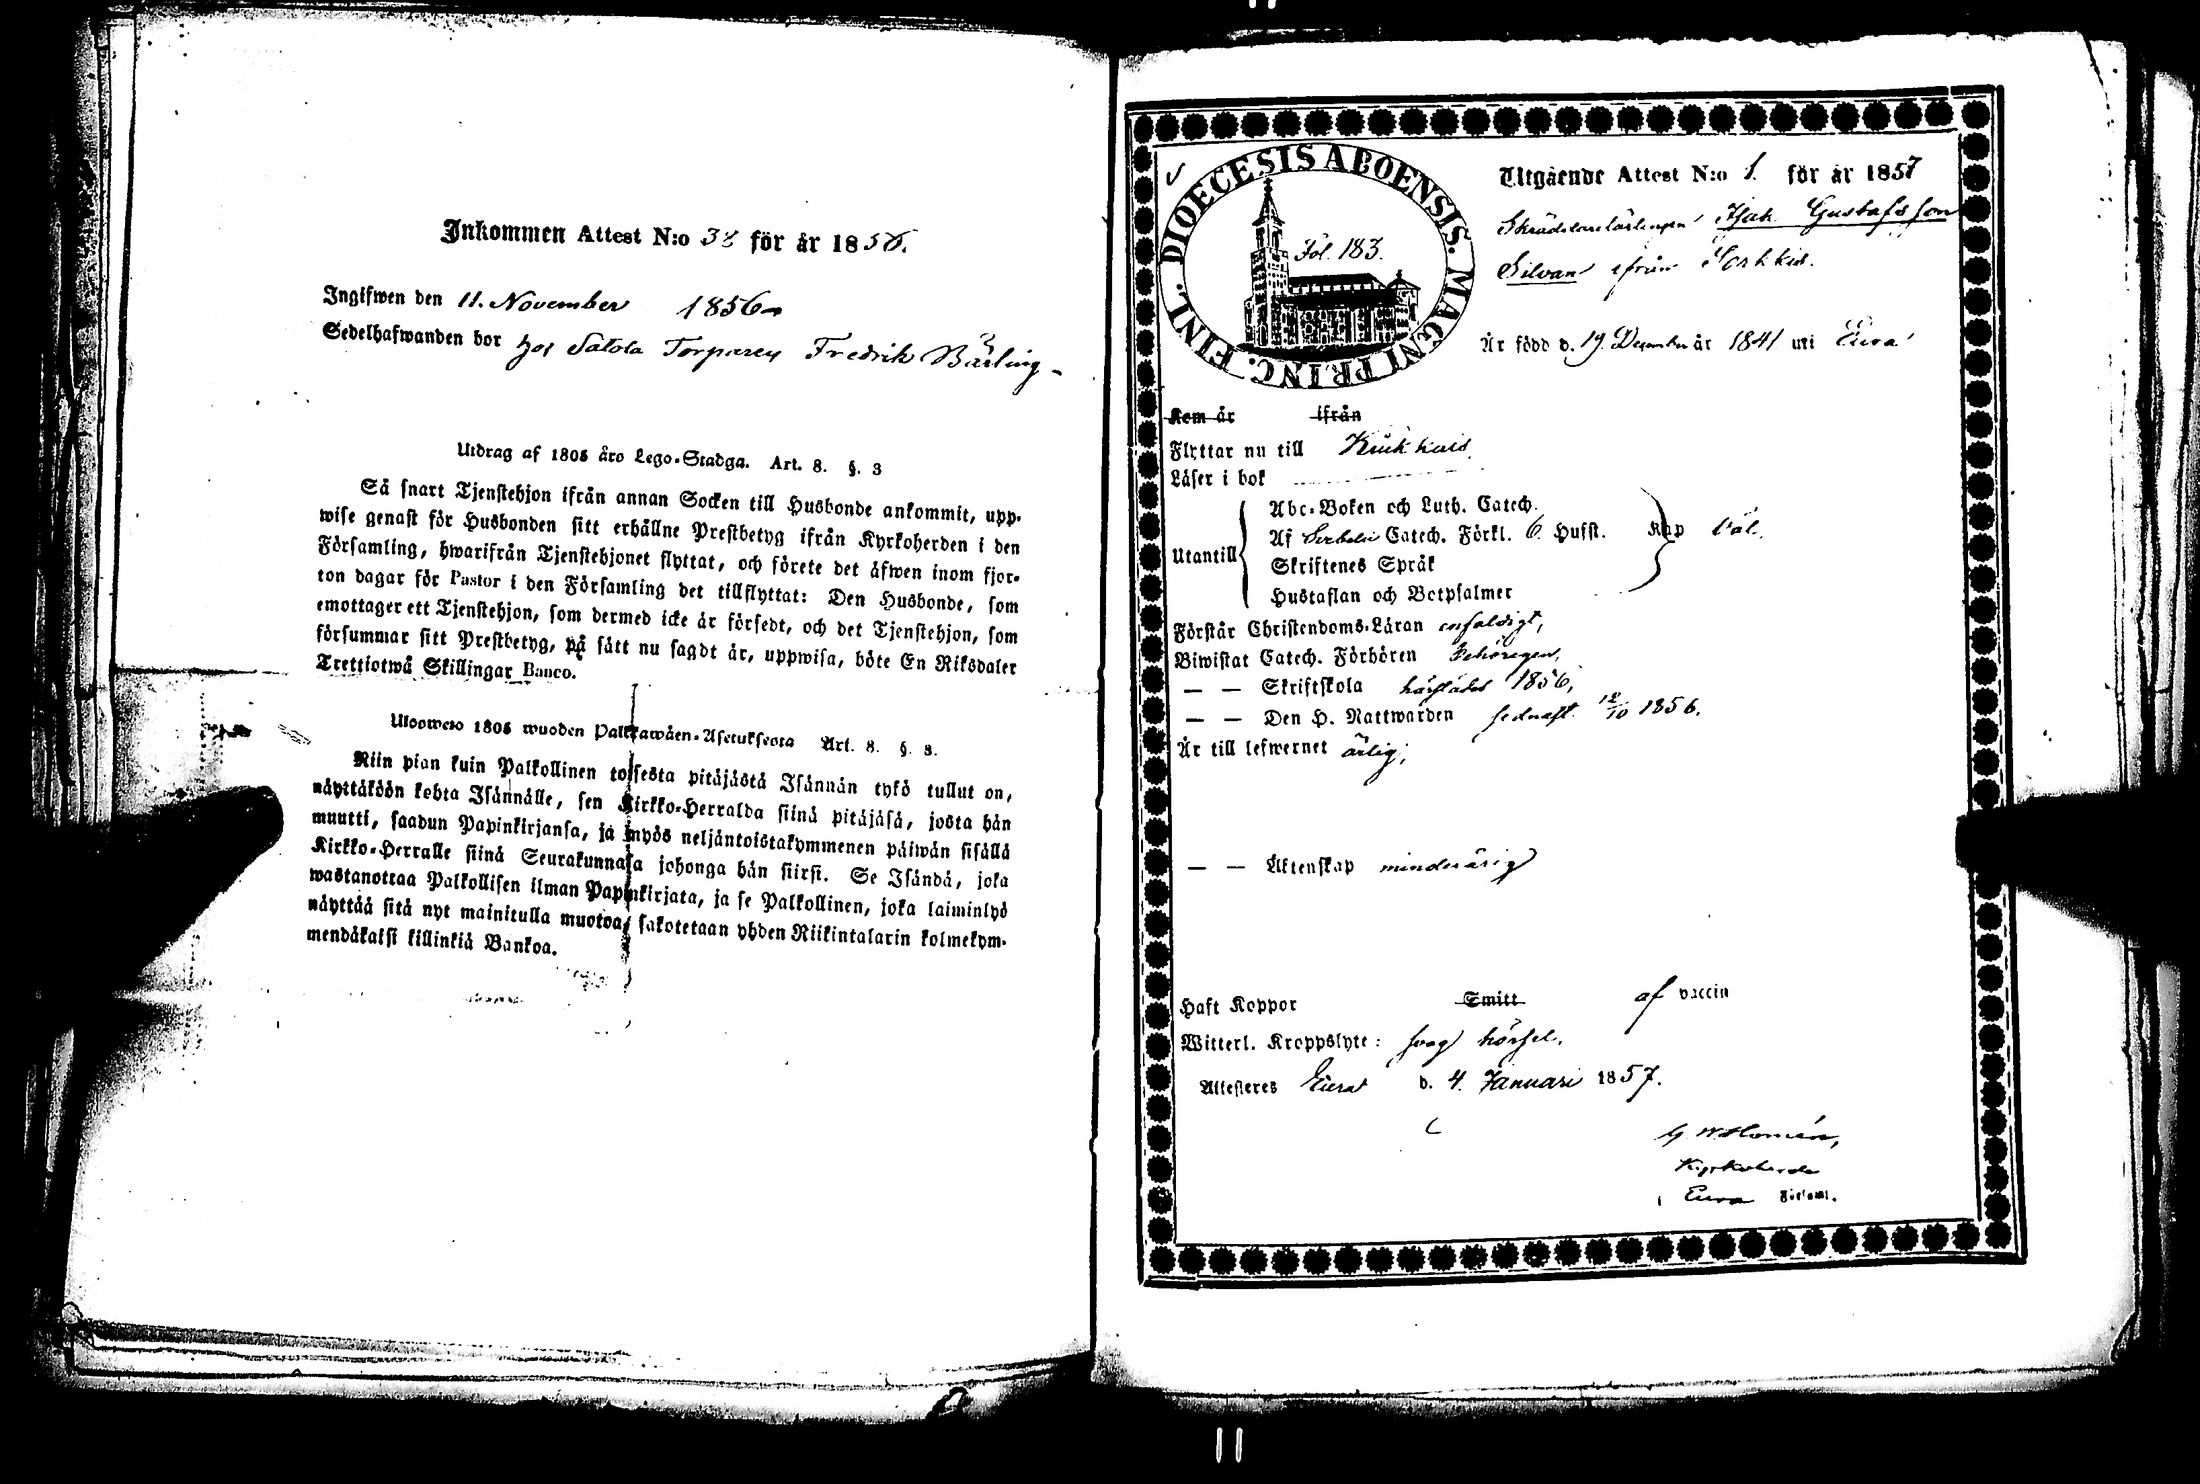 Inkommen Attest N:o 32 för år 1856.
Ingifwen den 11. November 1856
Sedelhafwanden bor hos Satola Torparen Fredrik Bärling
Utdrag af 1805 års Lego-Stadga. Art. 8. §. 3
Så snart Tjenstehjon ifrån annan Socken till Husbonde ankommit, upp-
wise genast för Husbonden sitt erhållne Prestbetyg ifrån Kyrkoherden i den
Församling, hwarifrån Tjenstehjonet flyttat, och förete det äfwen inom fjor-
ton dagar för Pastor i den Församling det tillflyttat: Den Husbonde, som
emottager ett Tjenstehjon, som dermed icke är försedt, och det Tjenstehjon, som
försummar sitt Prestbetyg, på sätt nu sagdt är, uppwisa, böte En Riksdaler
Trettiotwå Skillingar Banco.
Ulosweto 1805 wuoden Palkkawäen-Asetuksesta Art. 8. §. 3.
Niin pian kuin Palkollinen toisesta pitäjästä Isännän tykö tullut on,
näyttäköön kohta Isännälle, sen Kirkko-Herralda siinä pitäjäsä, josta hän
muutti, saadun Papinkirjansa, ja myös neljäntoistakymmenen päiwän sisällä
Kirkko-Herralle siinä Seurakunnasa johonga hän siirsi. Se Isändä, joka
wastanottaa Palkollisen ilman Papinkirjata, ja se Palkollinen, joka laiminlyö
näyttää sitä nyt mainitulla muotoa, sakotetaan yhden Riikintalarin kolmekym-
mendäkaksi killinkiä Bankoa.
DIOECESIS ABOENSIS. MAGNI PRINC. FINL.
Fol. 183.
Utgående Attest N:o 1. för år 1857
Skräddarelärlingen Isak Gustafsson
Silvan ifrån Sorkkis.
Är född d. 19 December år 1841 uti Eura
Kom år ifrån
Flyttar nu till Kiukkais
Läser i bok
Utantill
Abc-Boken och Luth. Catech.
Af Serbelii Catech. Förkl. 6. Hufst. Kap väl.
Skriftenes Språk
Hustaflan och Botpsalmer
Förstår Christendoms-Läran enfaldigt,
Biwistat Catech. Förhören behörigen,
— — Skriftskola härstädes 1856,
— — Den H. Nattwarden sednast 12/10 1856.
Är till lefwernet ärlig;
— — Äktenskap minderårig
Haft Koppor Smitt af vaccin
Witterl. Kroppslyte: svag hörsel.
Attesteres Eura d. 4. Januari 1857.
G. W. Homén,
Kyrkoherde
i Eura Församl.